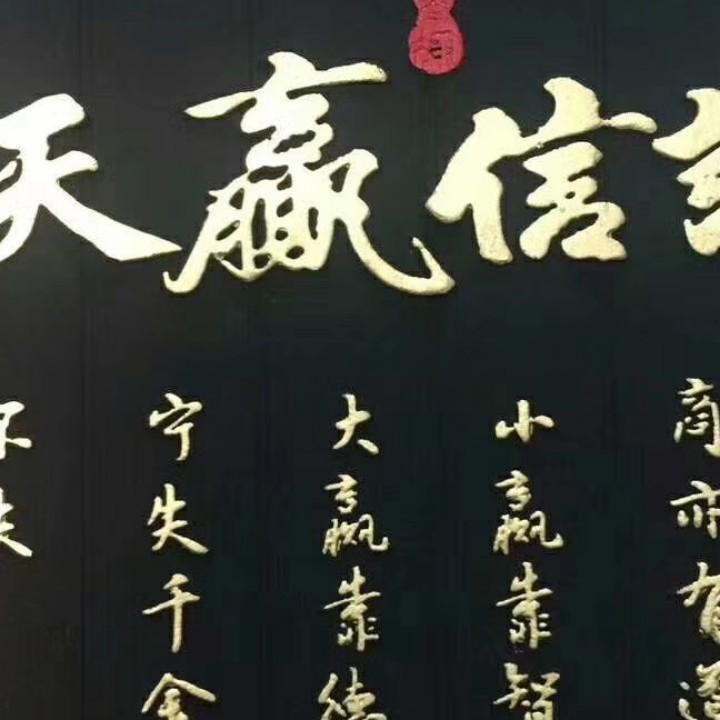 信赢天
商亦有道
小赢靠智
大赢靠德
宁失千金